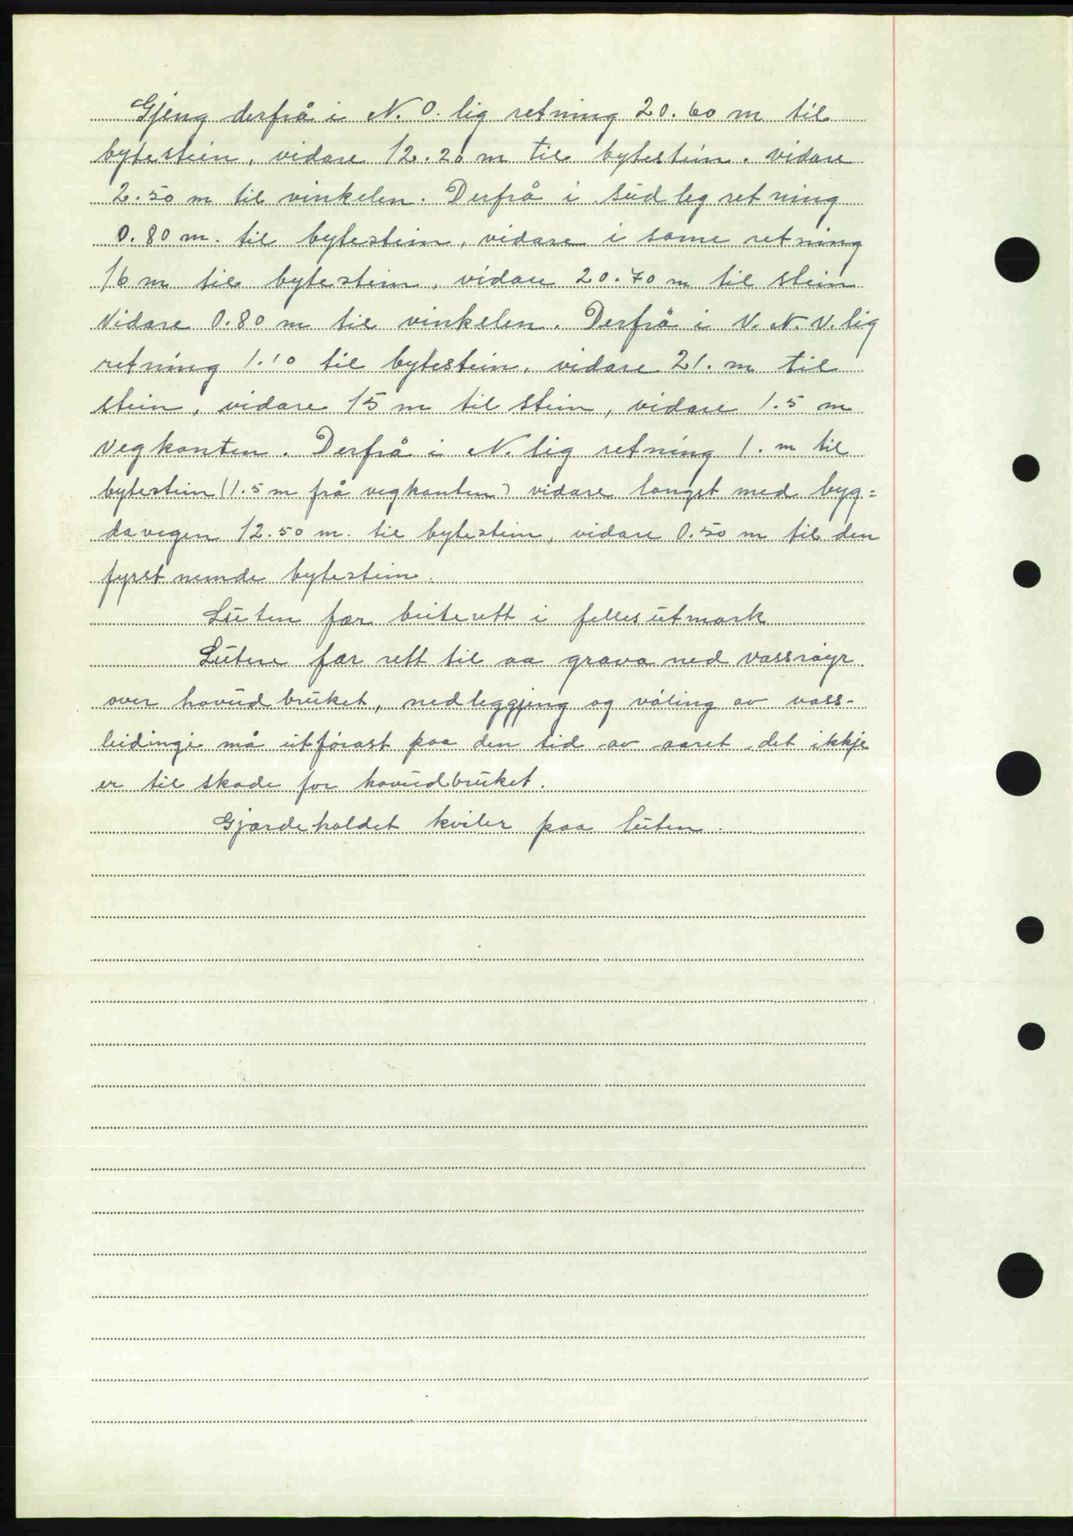 Gjeng derfrå i N.O. lig retning 20.60 m til
bytestein, vidare 12.20 m til bytestein. vidare
2.50 m til vinkelen. Derfrå i südleg retning
0.80 m. til bytestein, vidare i same retning
16 m til bytestein, vidare 20.70 m til stein
Vidare 0.80 m til vinkelen. Derfrå i V.N.V.lig
retning 1.10 til bytestein, vidare 21. m til
stein, vidare 15 m til stein, vidare 1.5 m
vegkanten. Derfrå i N. lig retning 1. m til
bytestein (1.5 m frå vegkanten) vidare langst med byg=
davegen 12.50 m. til bytestein, vidare 0.50 m til den
fyrst nemde bytestein.
Lüten fær beiterett i felles ütmark
Lüten fær rett til aa grava ned vassrøyr
over hovüdbrüket, nedleggjing og völing av vass-
leidingi må ütförast paa den tid av aaret det ikkje
er til skade for hovüdbrüket.
Gjærdeholdet kviler paa lüten.